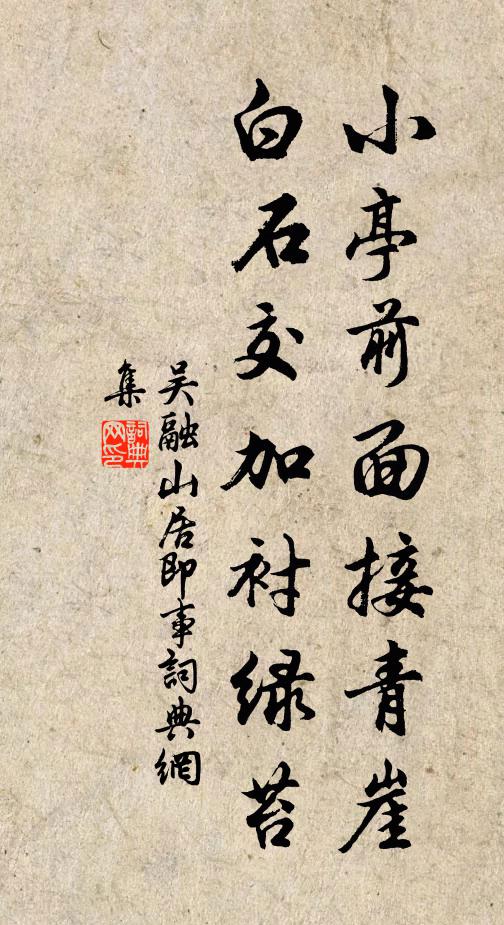 小亭前面接青崖
白石交加衬绿苔
吴融山居即事詞典網
集
詞典
网印